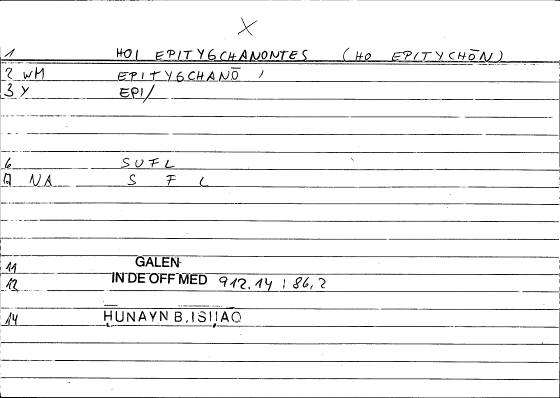 X
1 HOI EPITYGCHANONTES (HO EPITYCHŌN)
2 WM EPITYGCHANŌ /
3 Y EPI/
6 SUFL
NA S F L
11 GALEN
12 IN DE OFF MED 912,14 ; 86,2
14 HUNAYN B. ISḤAQ